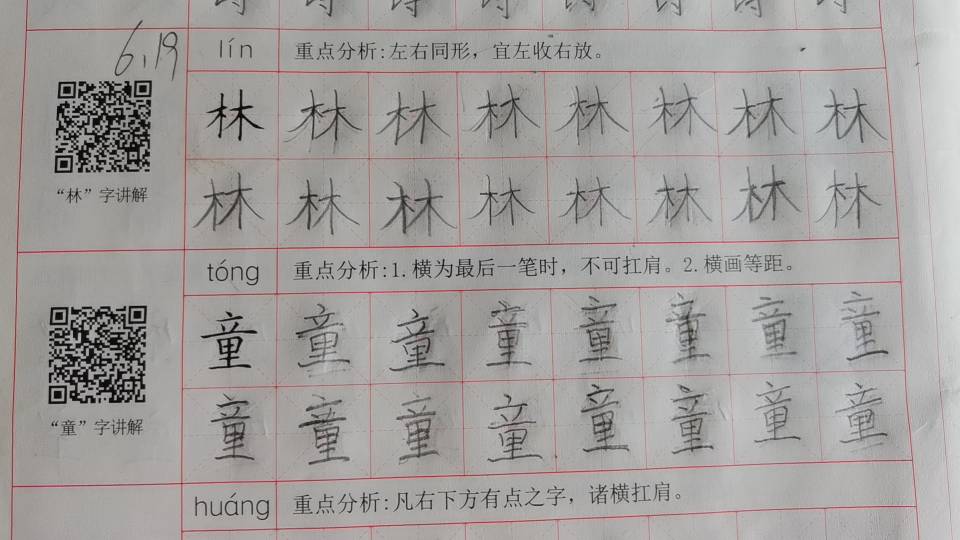 6.19
lín 重点分析:左右同形，宜左收右放。
林 林 林 林 林 林 林 林
“林”字讲解
林 林 林 林 林 林 林 林
tóng 重点分析:1.横为最后一笔时，不可扛肩。2.横画等距。
童 童 童 童 童 童 童 童
“童”字讲解
童 童 童 童 童 童 童 童
huáng 重点分析:凡右下方有点之字，诸横扛肩。